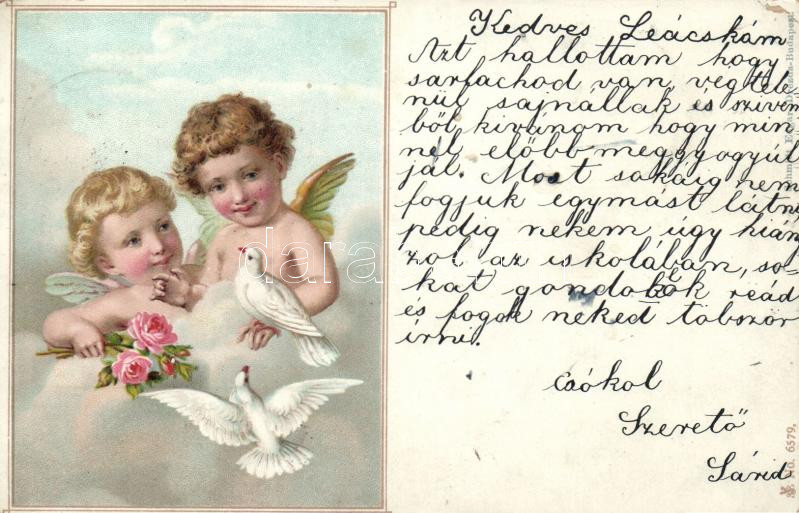 Kedves Leácskám
Azt hallottam hogy
sarlachod van végtele
nül sajnállak és szívem
ből kivánom hogy min
nél előbb meggyogyúl
jál. Most sokáig nem
fogjuk egymást látni
pedig nekem úgy hián
zol az iskolában, so-
kat gondolok reád
és fogok neked többször
írni.
Csókol
Szerető
Sárid
No. 6579.
darabanth